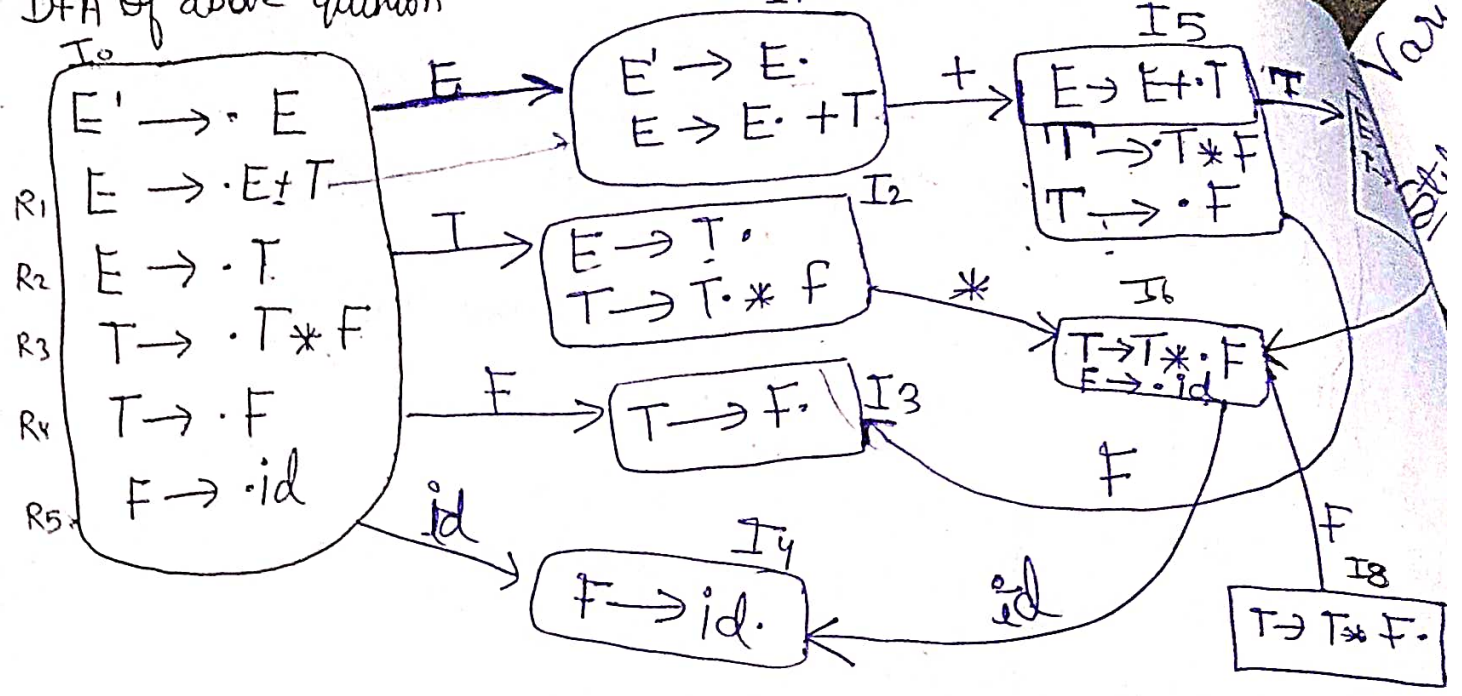 DFA of above question
I0
E' → · E
R1 E → ·E+T
R2 E → ·T
R3 T → ·T * F
R4 T → ·F
R5 F → ·id
E
E' → E·
E → E· + T
+
I5
E → E+·T
T → ·T * F
T → ·F
T
Var
T
I2
E → T·
T → T· * F
*
I6
T → T * · F
F → ·id
F
T → F·
I3
F
id
I4
F → id·
id
F
I8
T → T * F·